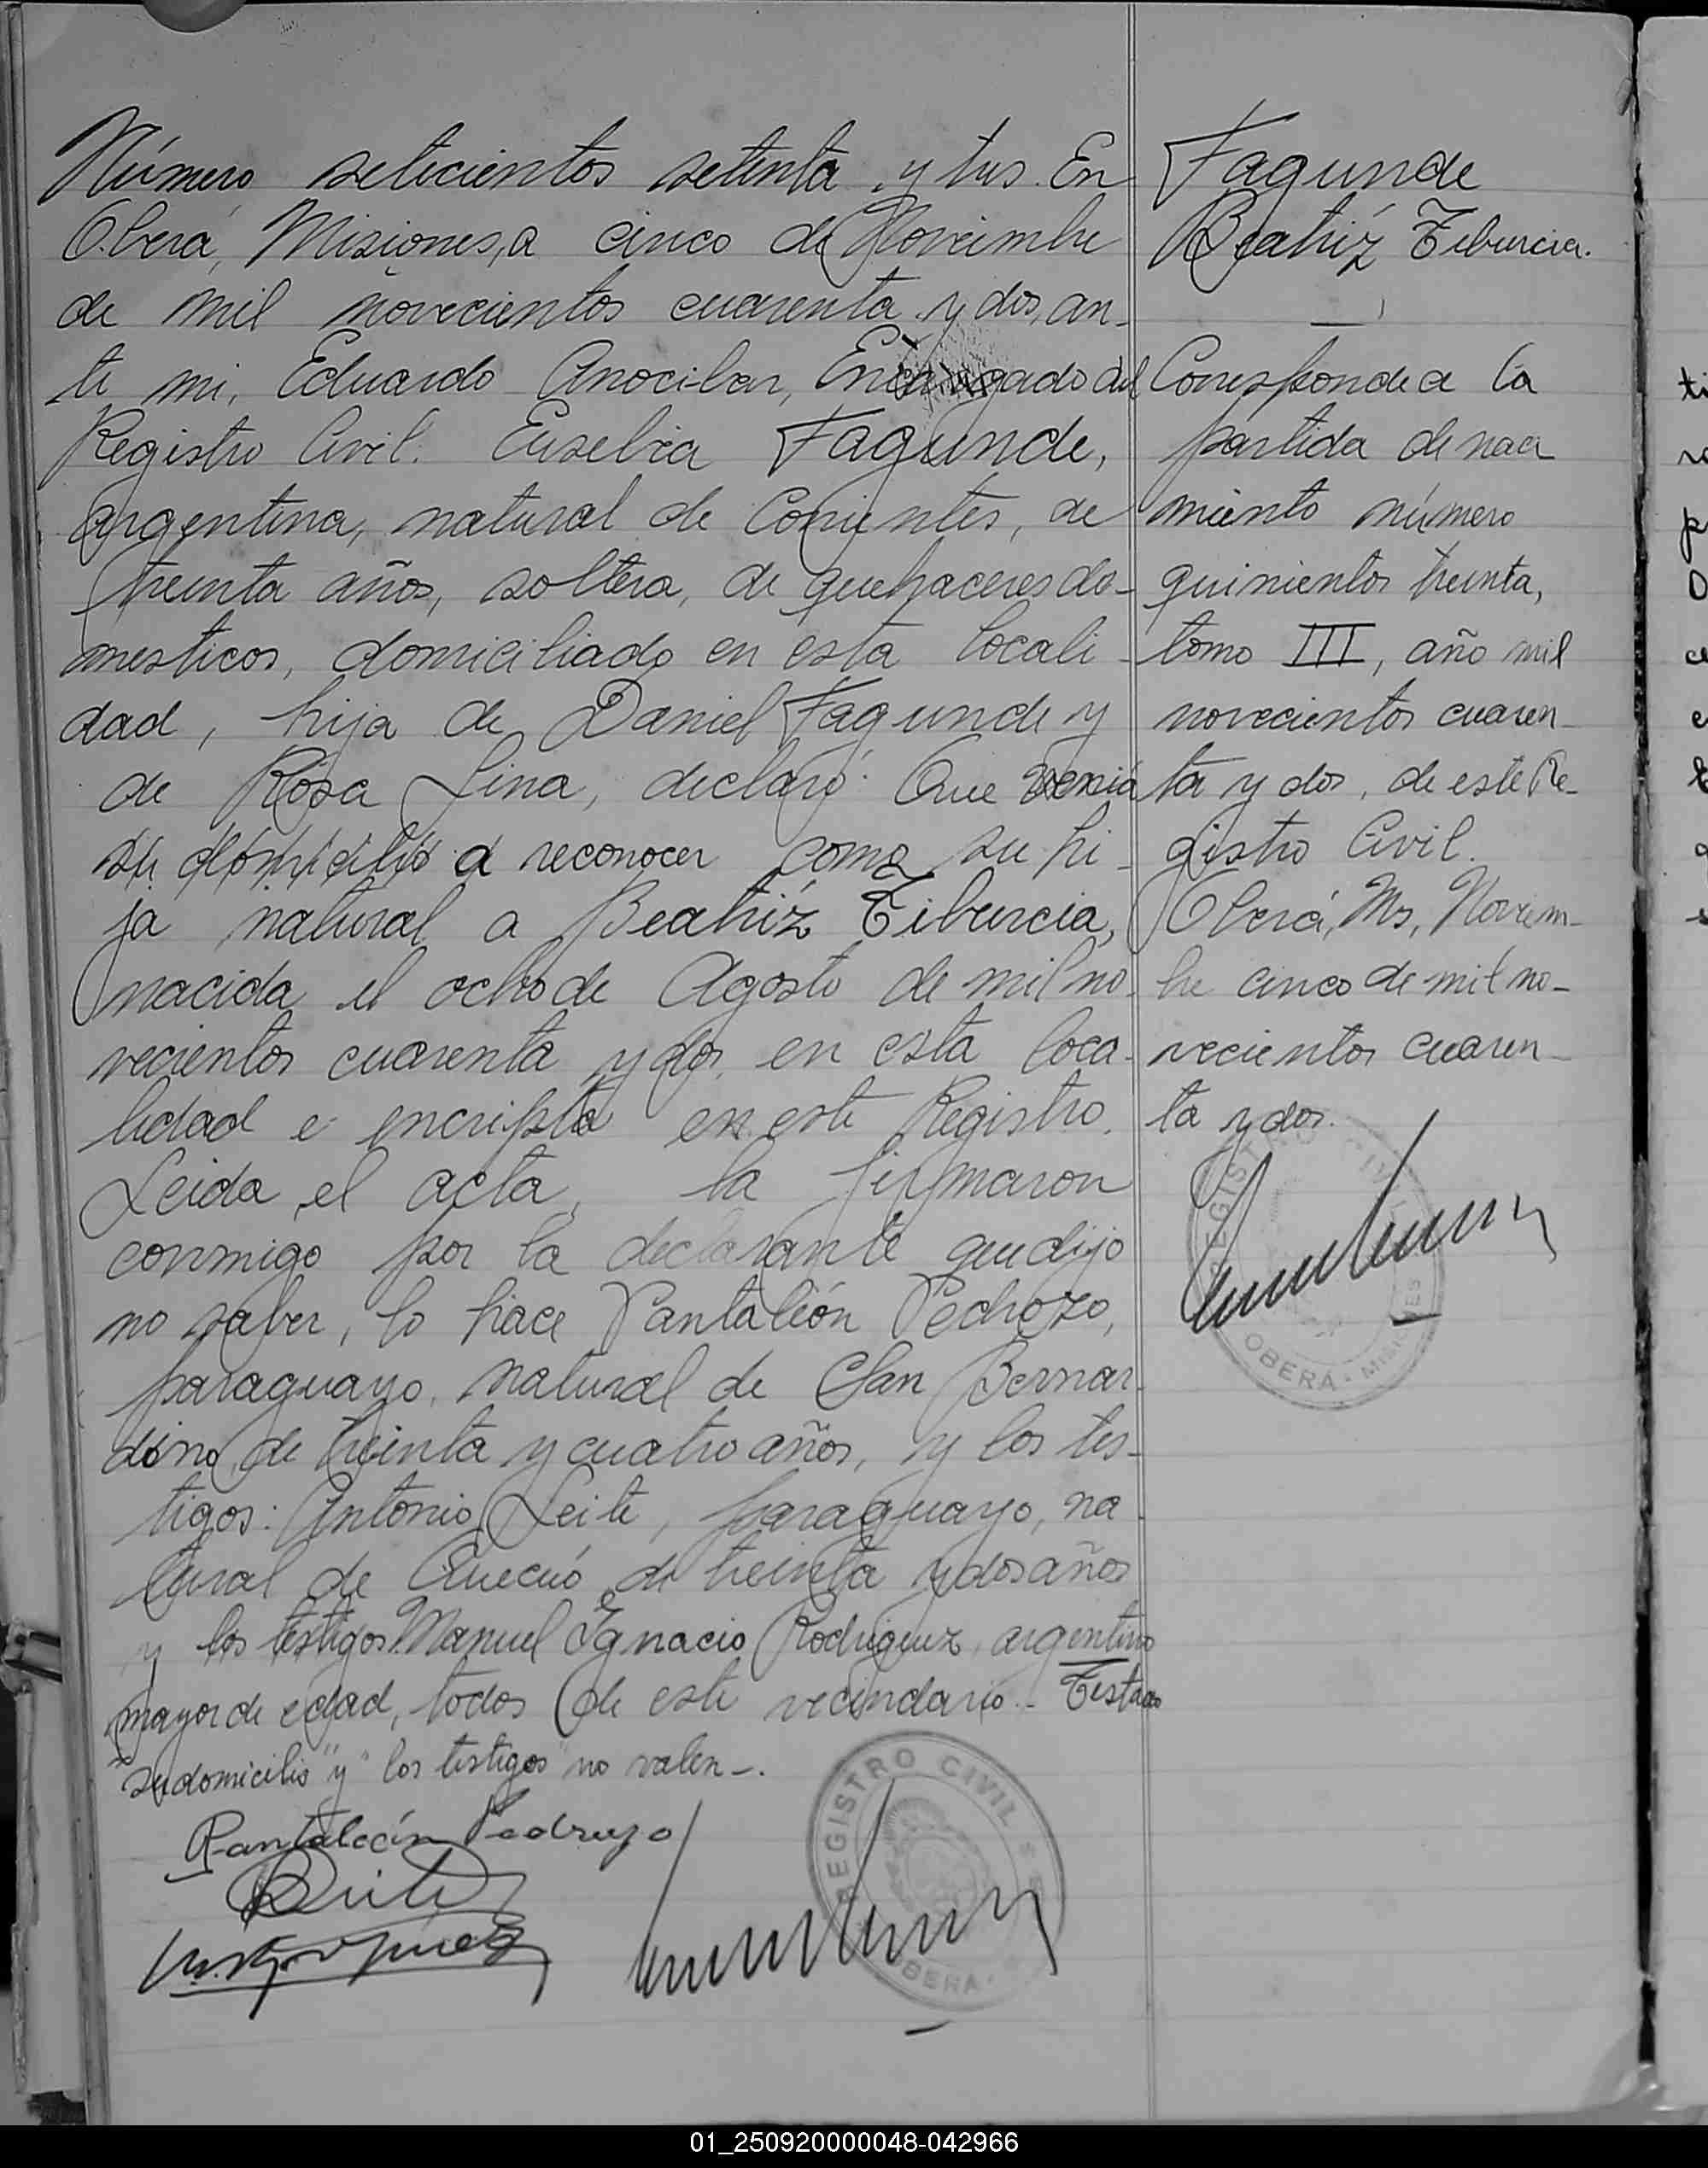 Número setecientos setenta y tres. En
Oberá, Misiones, a cinco de Noviembre
de mil novecientos cuarenta y dos, an-
te mi, Eduardo Anocibar, Encargado del
Registro Civil. Eusebia Fagunde,
argentina, natural de Corrientes, de
treinta años, soltera, de quehaceres do-
mesticos, domiciliado en esta locali-
dad, hija de Daniel Fagunde y
de Rosa Lina, declaró: Que venia
su domicilio a reconocer como su hi-
ja natural a Beatriz Tiburcia,
nacida el ocho de Agosto de mil no-
vecientos cuarenta y dos, en esta loca-
lidad e encripta en este Registro.
Leida el acta, la firmaron
conmigo por la declarante que dijo
no saber, lo hace Pantaleón Pedrozo,
paraguayo, natural de San Bernar-
dino, de treinta y cuatro años, y los tes-
tigos: Antonio Leite, paraguayo, na-
tural de de treinta y dos años
y los testigos Manuel Ignacio Rodriguez, argentino
mayor de edad, todos de este vecindario.- Testado
"su domicilio" y "los testigos" no valen-.
Pantaleón Pedrozo
REGISTRO CIVIL
OBERA
Fagunde
Beatriz Tiburcia.
Corresponde a la
partida de naci
miento número
quinientos treinta,
tomo III, año mil
novecientos cuaren-
ta y dos, de este Re-
gistro Civil.
Oberá, Ms, Noviem-
bre cinco de mil no-
vecientos cuaren-
ta y dos.
REGISTRO CIVIL
OBERA - MISIONES
01_250920000048-042966